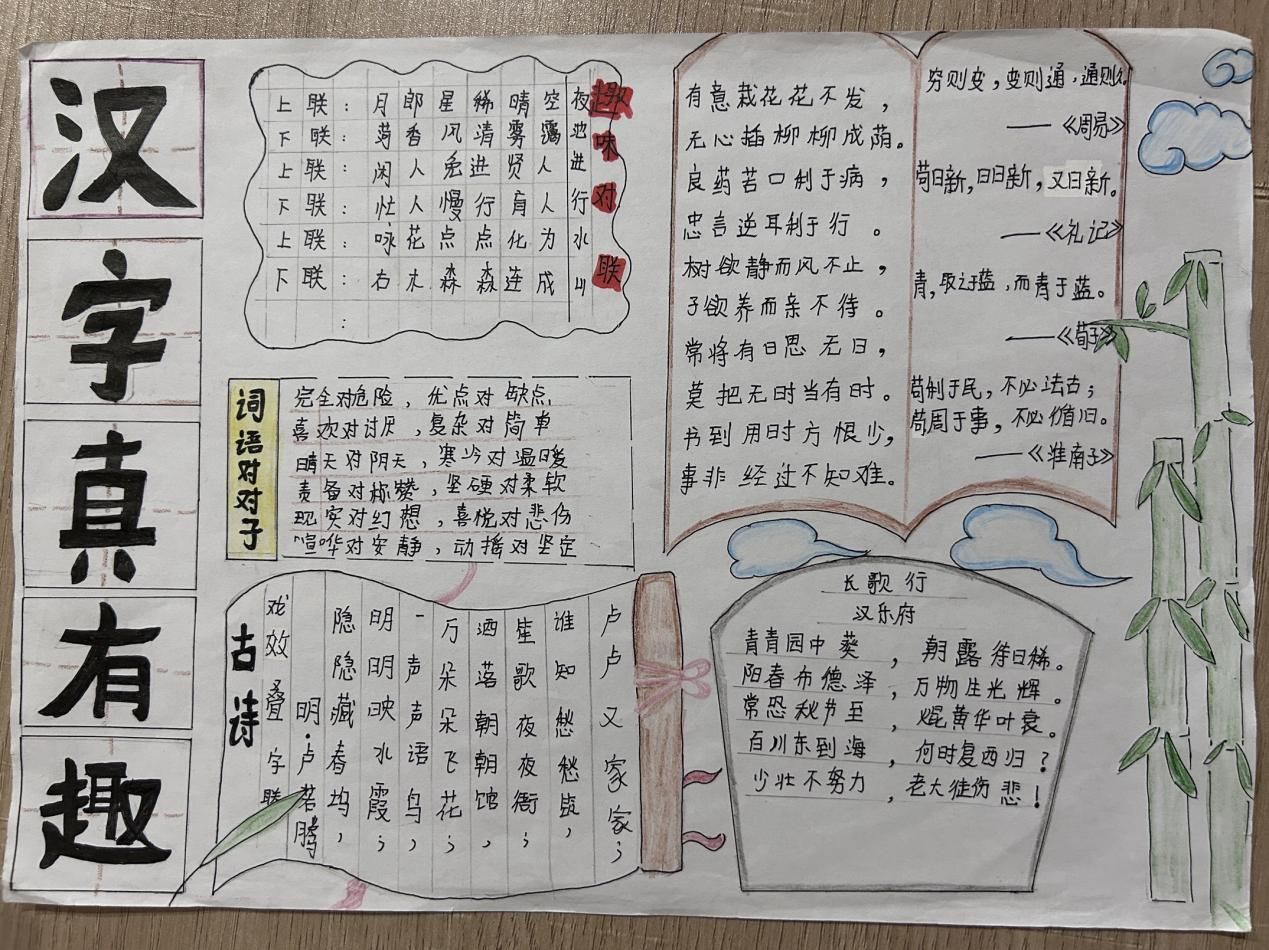 汉字真有趣
趣味对联
上联：月郎星稀晴空夜
下联：荷香风清雾霭池
上联：闲人免进贤人进
下联：忙人慢行有人行
上联：咏花点点化为水
下联：右木森森连成山
：
词语对对子
完全对危险，优点对缺点
喜欢对讨厌，复杂对简单
晴天对阴天，寒冷对温暖
责备对称赞，坚硬对柔软
现实对幻想，喜悦对悲伤
喧哗对安静，动摇对坚定
古诗
戏效叠字联
明·卢若腾
隐隐藏春坞，
明明映水霞；
一声声语鸟，
万朵朵飞花；
洒落朝朝馆，
笙歌夜夜衙；
谁知愁愁
卢卢又家家；
有意栽花花不发，
无心插柳柳成荫。
良药苦口利于病，
忠言逆耳利于行。
树欲静而风不止，
子欲养而亲不待。
常将有日思无日，
莫把无时当有时。
书到用时方恨少，
事非经过不知难。
穷则变，变则通，通则久
——《周易》
苟日新，日日新，又日新。
——《礼记》
青，取之于蓝，而青于蓝。
——《荀子》
苟利于民，不必法古；
苟周于事，不必循旧。
——《淮南子》
长歌行
汉乐府
青青园中葵，朝露待日稀。
阳春布德泽，万物生光辉。
常恐秋节至，焜黄华叶衰。
百川东到海，何时复西归？
少壮不努力，老大徒伤悲！